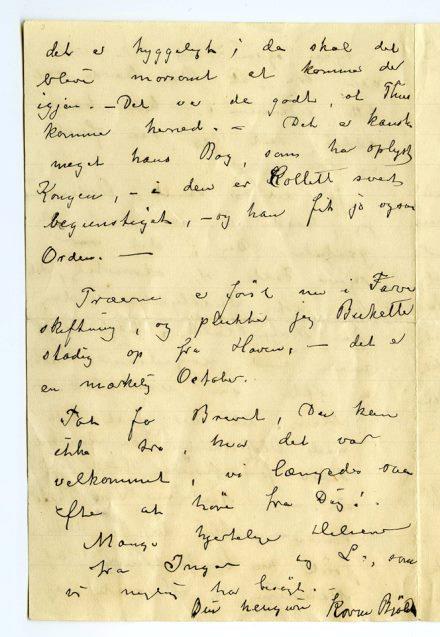 det er hyggeligt; da skal det
blive morsomt at komme der
igjen. – Det var da godt, at
komme herned. – Det er kanske
meget hans Bog, som har oplyst
Kongen, – i den er Collett svært
begunstiget, – og han fik jo ogsaa
Orden. —
Træerne er först nu i Farve
skiftning, og plukker jeg Buketter
stadig op fra Haven, – det er
en mærkelig October.
Tak for Brevet, Du kan
ikke tro, hvor det var
velkommet, vi længtede saa
efter at höre fra Dig!.
Mange hjertelige Hilsener
fra Inga og L., som
vi nylig har besögt. –
Din hengivne